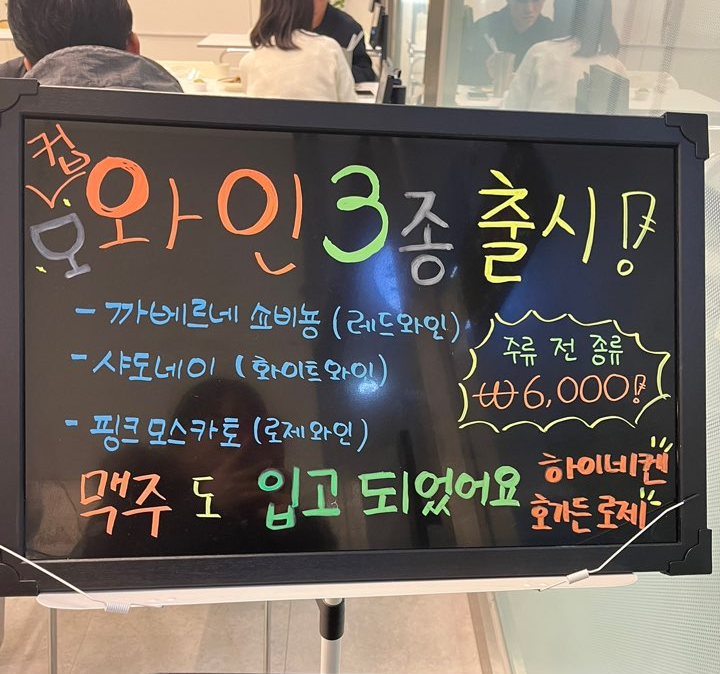 컵 와인 3종 출시!
- 까베르네 쇼비뇽 (레드와인)
- 샤도네이 (화이트와인)
- 핑크모스카토 (로제와인)
주류 전 종류
₩6,000!
맥주도 입고 되었어요
하이네켄
호가든로제